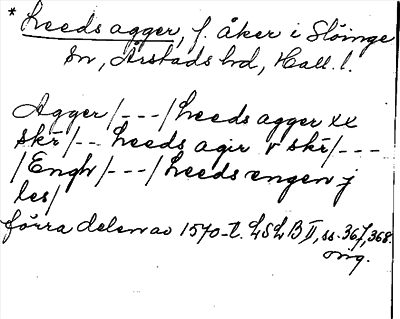 * Leeds agger, f. åker i Slöinge
sn, Årstads hd, Hall. l.
Agger /---/ Leeds agger xx
skr /-- Leeds agir v skr /---
/ Engh /---/ Leeds engen j
les /
förra delen av 1570-t. LSLB II, ss. 367, 368.
orig.